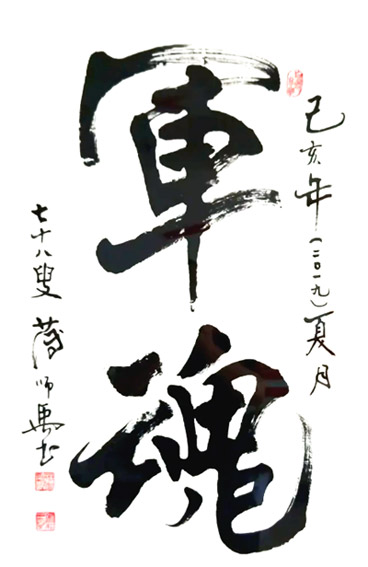 己亥年(二〇一九)夏月
軍魂
七十八叟 薄师禹书